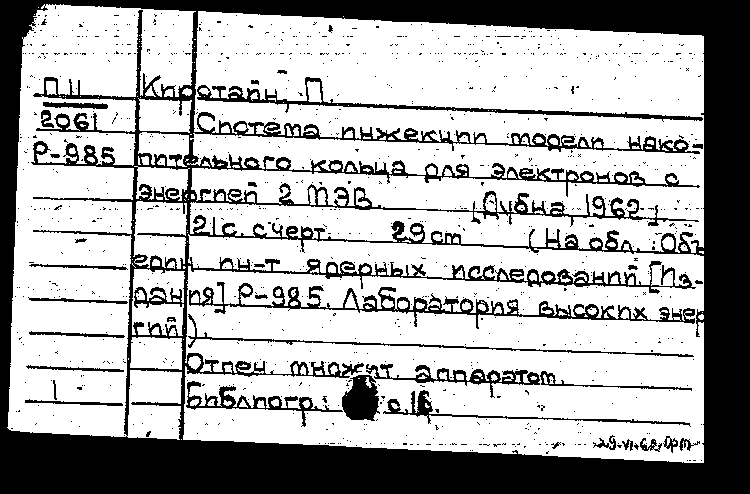 П11 Кирстайн, П.
2061 Система инжекции модели нако-
Р-985 пительного кольца для электронов с
энергией 2 МЭВ. [Дубна, 1962].
21с. с черт. 29 cm (На обл.: Объ
един ин-т ядерных исследований. [Из-
дания] Р-985. Лаборатория высоких энер
гий).
Отпеч. множит. аппаратом.
1 Библиогр.: с.16.
29.VI.62